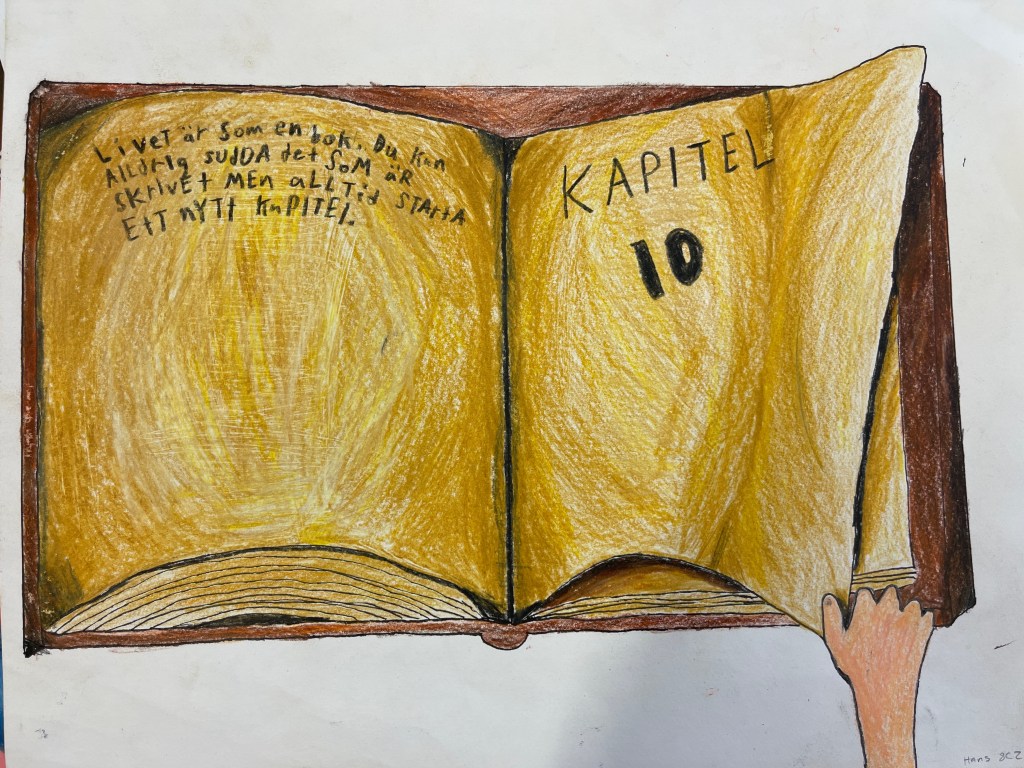 Livet är som en bok. Du kan
Aldrig SUDDA det SOM äR
SKRiVEt MEN aLLTid STARtA
EtT nYTt KaPITEL.
KAPITEL
10
Hans 8C2